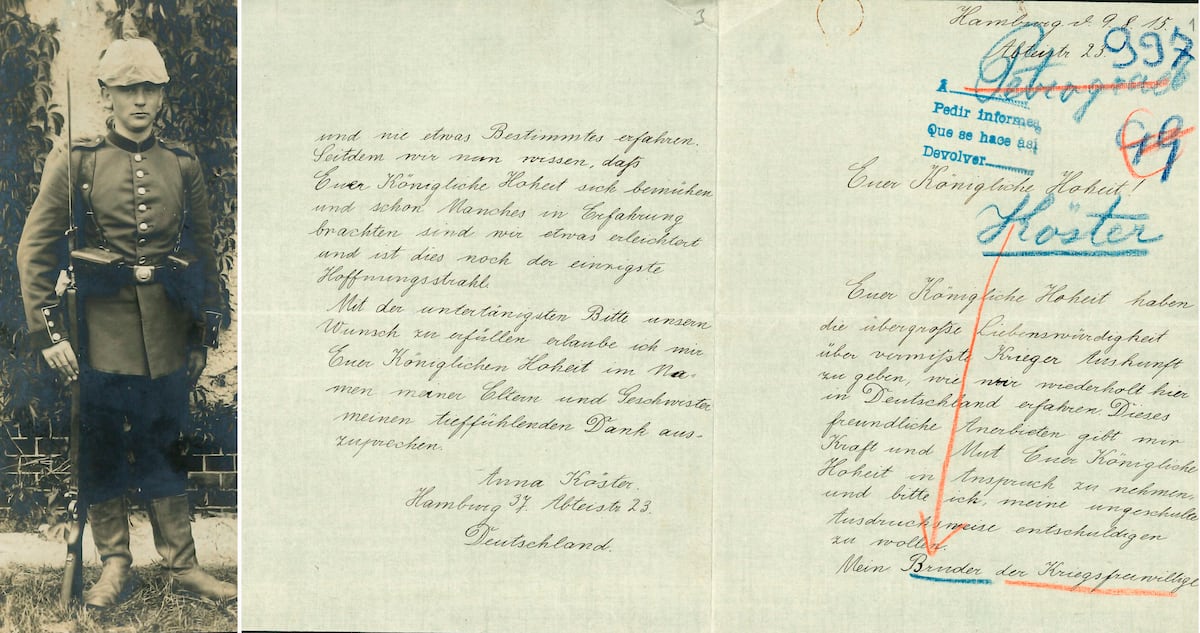 3
und nie etwas Bestimmtes erfahren.
Seitdem wir nun wissen, daß
Euer Königliche Hoheit sich bemühen
und schon Manches in Erfahrung
brachten sind wir etwas erleichtert
und ist dies noch der einzigste
Hoffnungsstrahl.
Mit der untertänigsten Bitte unsern
Wunsch zu erfüllen erlaube ich mir
Euer Königlichen Hoheit im Na-
men meiner Eltern und Geschwister
meinen tieffühlenden Dank aus-
zusprechen.
Anna Köster.
Hamburg 37. Abteistr 23.
Deutschland.
Hamburg d. 9.8.15.
1
Abteistr 23.
997
Petrograd
A
Pedir informes
Que se hace asi
Devolver
99
Euer Königliche Hoheit!
Köster
Euer Königliche Hoheit haben
die übergroße Liebenswürdigkeit
über vermißte Krieger Auskunft
zu geben, wie wir wiederholt hier
in Deutschland erfahren. Dieses
freundliche Anerbieten gibt mir
Kraft und Mut Euer Königliche
Hoheit in Anspruch zu nehmen,
und bitte ich, meine ungeschulte
Ausdrucksweise entschuldigen
zu wollen.
Mein Bruder der Kriegsfreiwillige